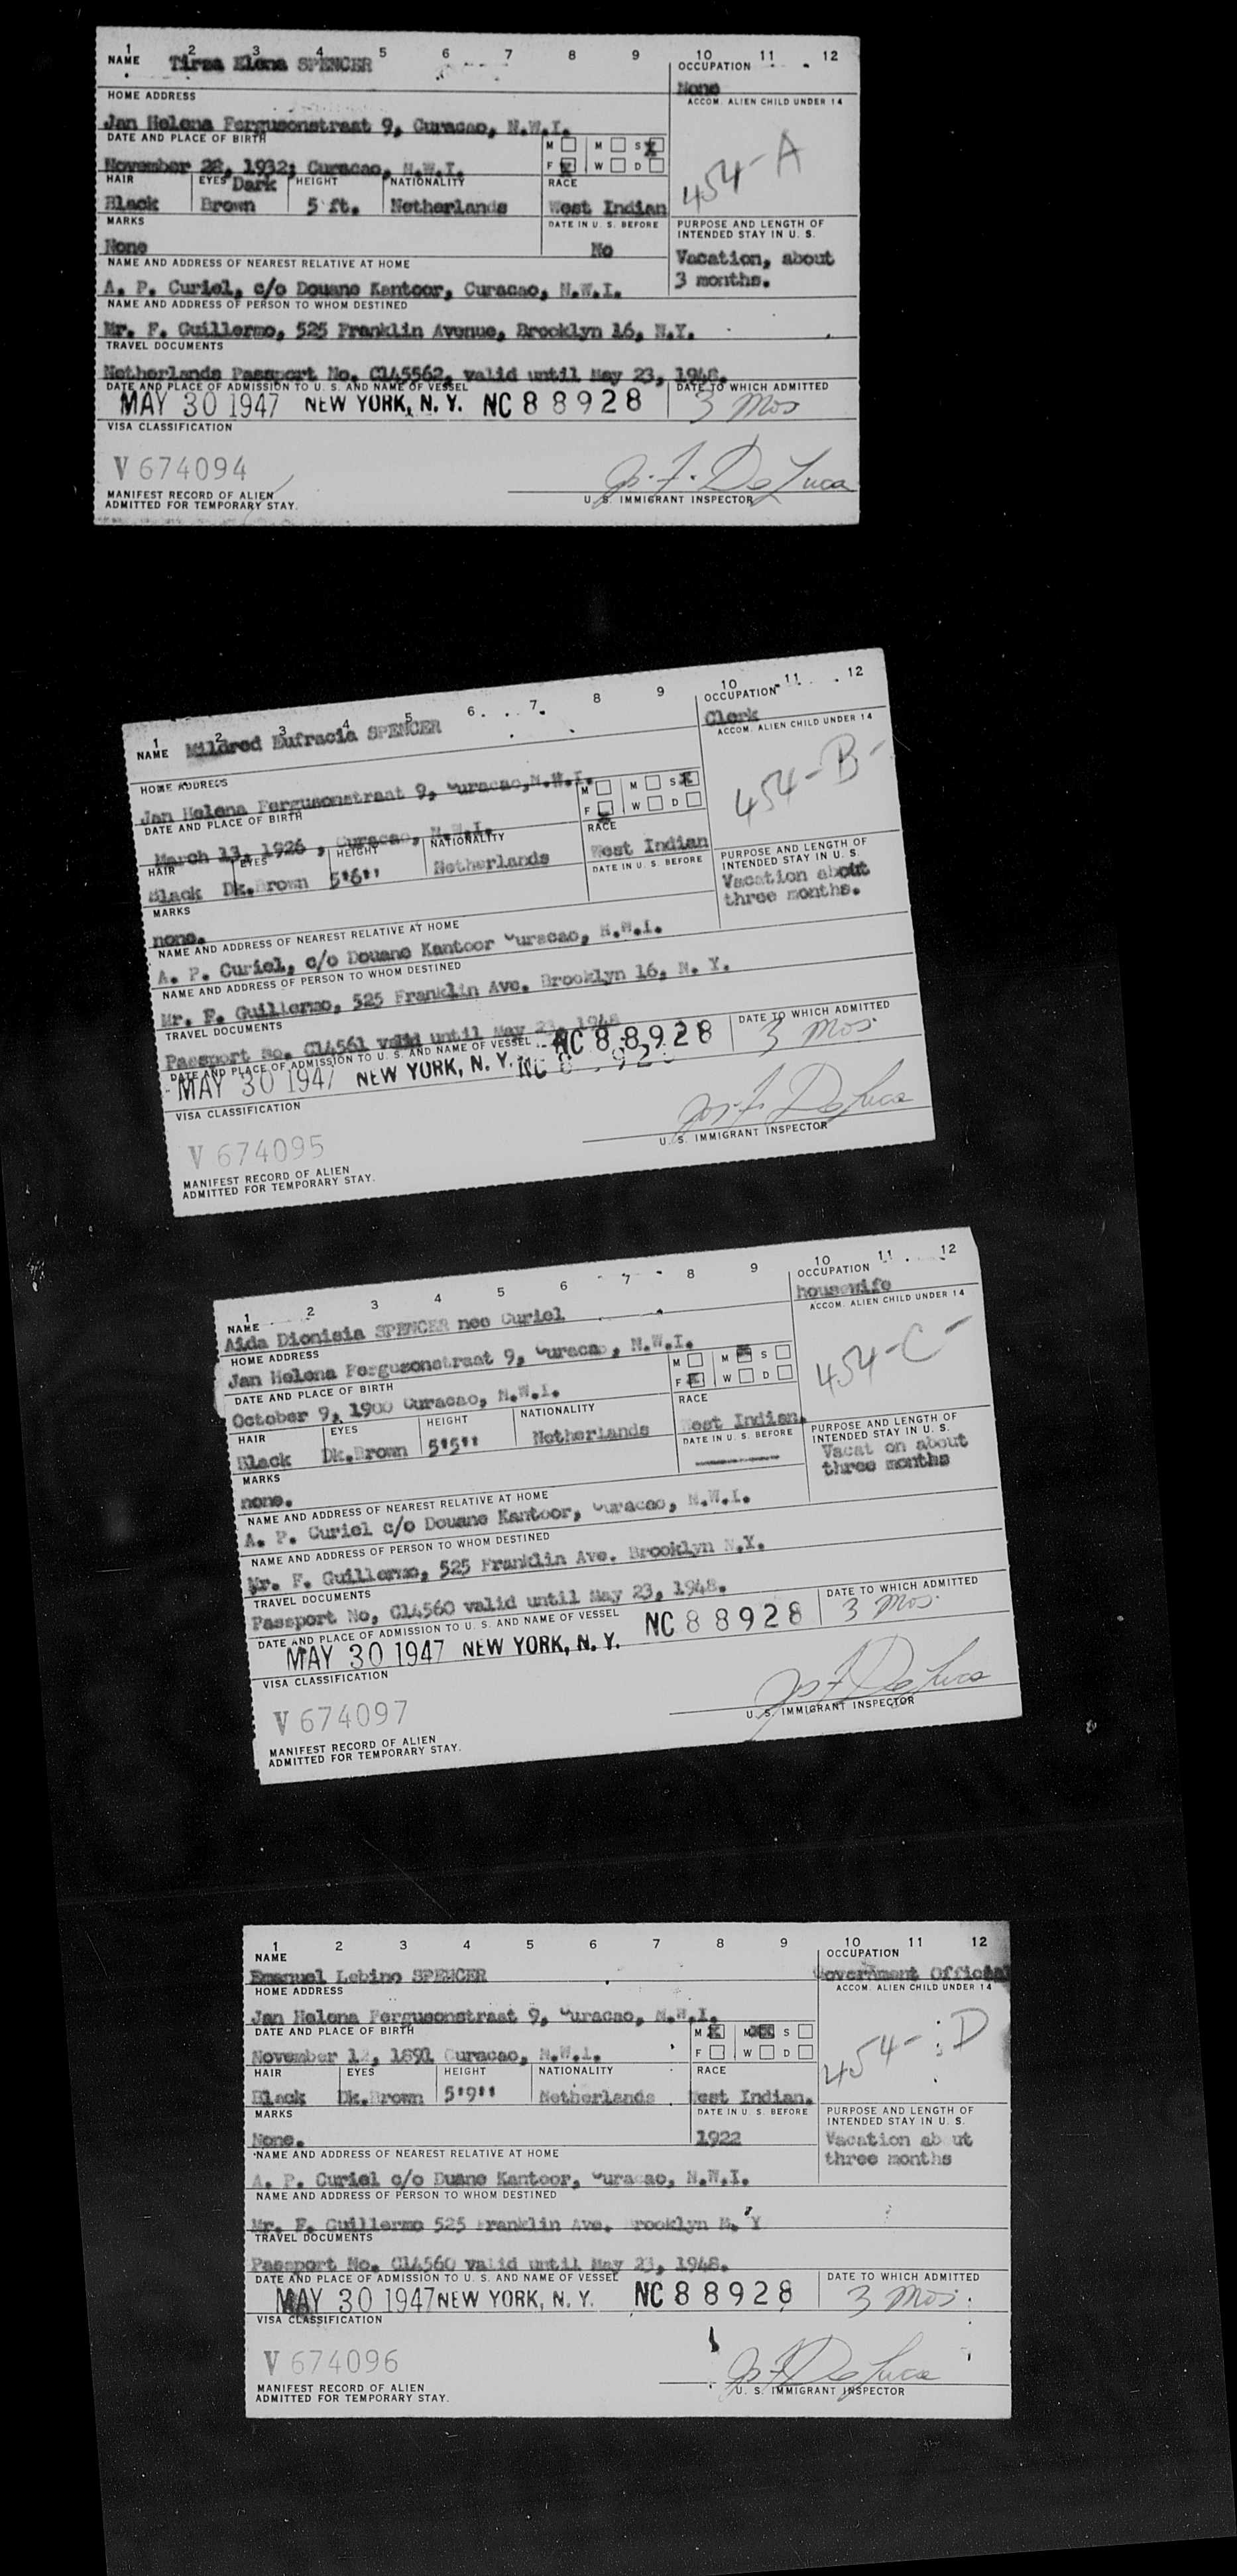 1 2 3 4 5 6 7 8 9 10 11 12
NAME Tirza Elena SPENCER
OCCUPATION
None
HOME ADDRESS
ACCOM. ALIEN CHILD UNDER 14
Jan Helena Fergusonstraat 9, Curacao, N.W.I.
454-A
DATE AND PLACE OF BIRTH
M M S X
November 28, 1932; Curacao, N.W.I.
F X W D
HAIR EYES Dark HEIGHT NATIONALITY RACE
Black Brown 5 ft. Netherlands West Indian
MARKS DATE IN U. S. BEFORE
PURPOSE AND LENGTH OF
INTENDED STAY IN U. S.
None No
Vacation, about
3 months.
NAME AND ADDRESS OF NEAREST RELATIVE AT HOME
A. P. Curiel, c/o Douane Kantoor, Curacao, N.W.I.
NAME AND ADDRESS OF PERSON TO WHOM DESTINED
Mr. F. Guillermo, 525 Franklin Avenue, Brooklyn 16, N.Y.
TRAVEL DOCUMENTS
Netherlands Passport No. C145562, valid until May 23, 1948.
DATE AND PLACE OF ADMISSION TO U. S. AND NAME OF VESSEL DATE TO WHICH ADMITTED
MAY 30 1947 NEW YORK, N. Y. NC 8 8 9 2 8 3 Mos
VISA CLASSIFICATION
V 674094
J. F. De Luca
MANIFEST RECORD OF ALIEN
ADMITTED FOR TEMPORARY STAY.
U. S. IMMIGRANT INSPECTOR
1 2 3 4 5 6 7 8 9 10 11 12
NAME Mildred Eufracia SPENCER
OCCUPATION
Clerk
HOME ADDRESS
ACCOM. ALIEN CHILD UNDER 14
Jan Helena Fergusonstraat 9, Curacao, N.W.I.
454-B-
DATE AND PLACE OF BIRTH
M M S X
March 13, 1926, Curacao, N.W.I.
F X W D
HAIR EYES HEIGHT NATIONALITY RACE
Black Dk.Brown 5'6" Netherlands West Indian
MARKS DATE IN U. S. BEFORE
PURPOSE AND LENGTH OF
INTENDED STAY IN U. S.
none.
Vacation about
three months.
NAME AND ADDRESS OF NEAREST RELATIVE AT HOME
A. P. Curiel, c/o Douane Kantoor Curacao, N.W.I.
NAME AND ADDRESS OF PERSON TO WHOM DESTINED
Mr. F. Guillermo, 525 Franklin Ave. Brooklyn 16, N. Y.
TRAVEL DOCUMENTS
Passport No. C14561 valid until May 23, 1948
DATE AND PLACE OF ADMISSION TO U. S. AND NAME OF VESSEL DATE TO WHICH ADMITTED
MAY 30 1947 NEW YORK, N. Y. NC 8 8 9 2 8 3 Mos.
VISA CLASSIFICATION
V 674095
J. F. De Luca
MANIFEST RECORD OF ALIEN
ADMITTED FOR TEMPORARY STAY.
U. S. IMMIGRANT INSPECTOR
1 2 3 4 5 6 7 8 9 10 11 12
NAME
OCCUPATION
Aida Dionisia SPENCER nee Curiel
housewife
HOME ADDRESS
ACCOM. ALIEN CHILD UNDER 14
Jan Helena Fergusonstraat 9, Curacao, N.W.I.
454-C-
DATE AND PLACE OF BIRTH
M M X S
October 9, 1900 Curacao, N.W.I.
F X W D
HAIR EYES HEIGHT NATIONALITY RACE
Black Dk.Brown 5'5" Netherlands West Indian.
MARKS DATE IN U. S. BEFORE
PURPOSE AND LENGTH OF
INTENDED STAY IN U. S.
none. ----------
Vacat on about
three months
NAME AND ADDRESS OF NEAREST RELATIVE AT HOME
A. P. Curiel c/o Douane Kantoor, Curacao, N.W.I.
NAME AND ADDRESS OF PERSON TO WHOM DESTINED
Mr. F. Guillermo, 525 Franklin Ave. Brooklyn N.Y.
TRAVEL DOCUMENTS
Passport No, C14560 valid until May 23, 1948.
DATE AND PLACE OF ADMISSION TO U. S. AND NAME OF VESSEL DATE TO WHICH ADMITTED
MAY 30 1947 NEW YORK, N. Y. NC 8 8 9 2 8 3 Mos.
VISA CLASSIFICATION
V 674097
J. F. De Luca
MANIFEST RECORD OF ALIEN
ADMITTED FOR TEMPORARY STAY.
U. S. IMMIGRANT INSPECTOR
1 2 3 4 5 6 7 8 9 10 11 12
NAME
OCCUPATION
Emanuel Lebino SPENCER
Government Official
HOME ADDRESS
ACCOM. ALIEN CHILD UNDER 14
Jan Helena Fergusonstraat 9, Curacao, N.W.I.
454-D
DATE AND PLACE OF BIRTH
M X M X S
November 12, 1891 Curacao, N.W.I.
F W D
HAIR EYES HEIGHT NATIONALITY RACE
Black Dk.Brown 5'9" Netherlands West Indian.
MARKS DATE IN U. S. BEFORE
PURPOSE AND LENGTH OF
INTENDED STAY IN U. S.
None. 1922
Vacation ab ut
three months
NAME AND ADDRESS OF NEAREST RELATIVE AT HOME
A. P. Curiel c/o Duane Kantoor, Curacao, N.W.I.
NAME AND ADDRESS OF PERSON TO WHOM DESTINED
Mr. F. Guillermo 525 Franklin Ave. Brooklyn N. Y
TRAVEL DOCUMENTS
Passport No. C14560 valid until May 23, 1948.
DATE AND PLACE OF ADMISSION TO U. S. AND NAME OF VESSEL DATE TO WHICH ADMITTED
MAY 30 1947 NEW YORK, N. Y. NC 8 8 9 2 8 3 Mos.
VISA CLASSIFICATION
V 674096
J. F. De Luca
MANIFEST RECORD OF ALIEN
ADMITTED FOR TEMPORARY STAY.
U. S. IMMIGRANT INSPECTOR